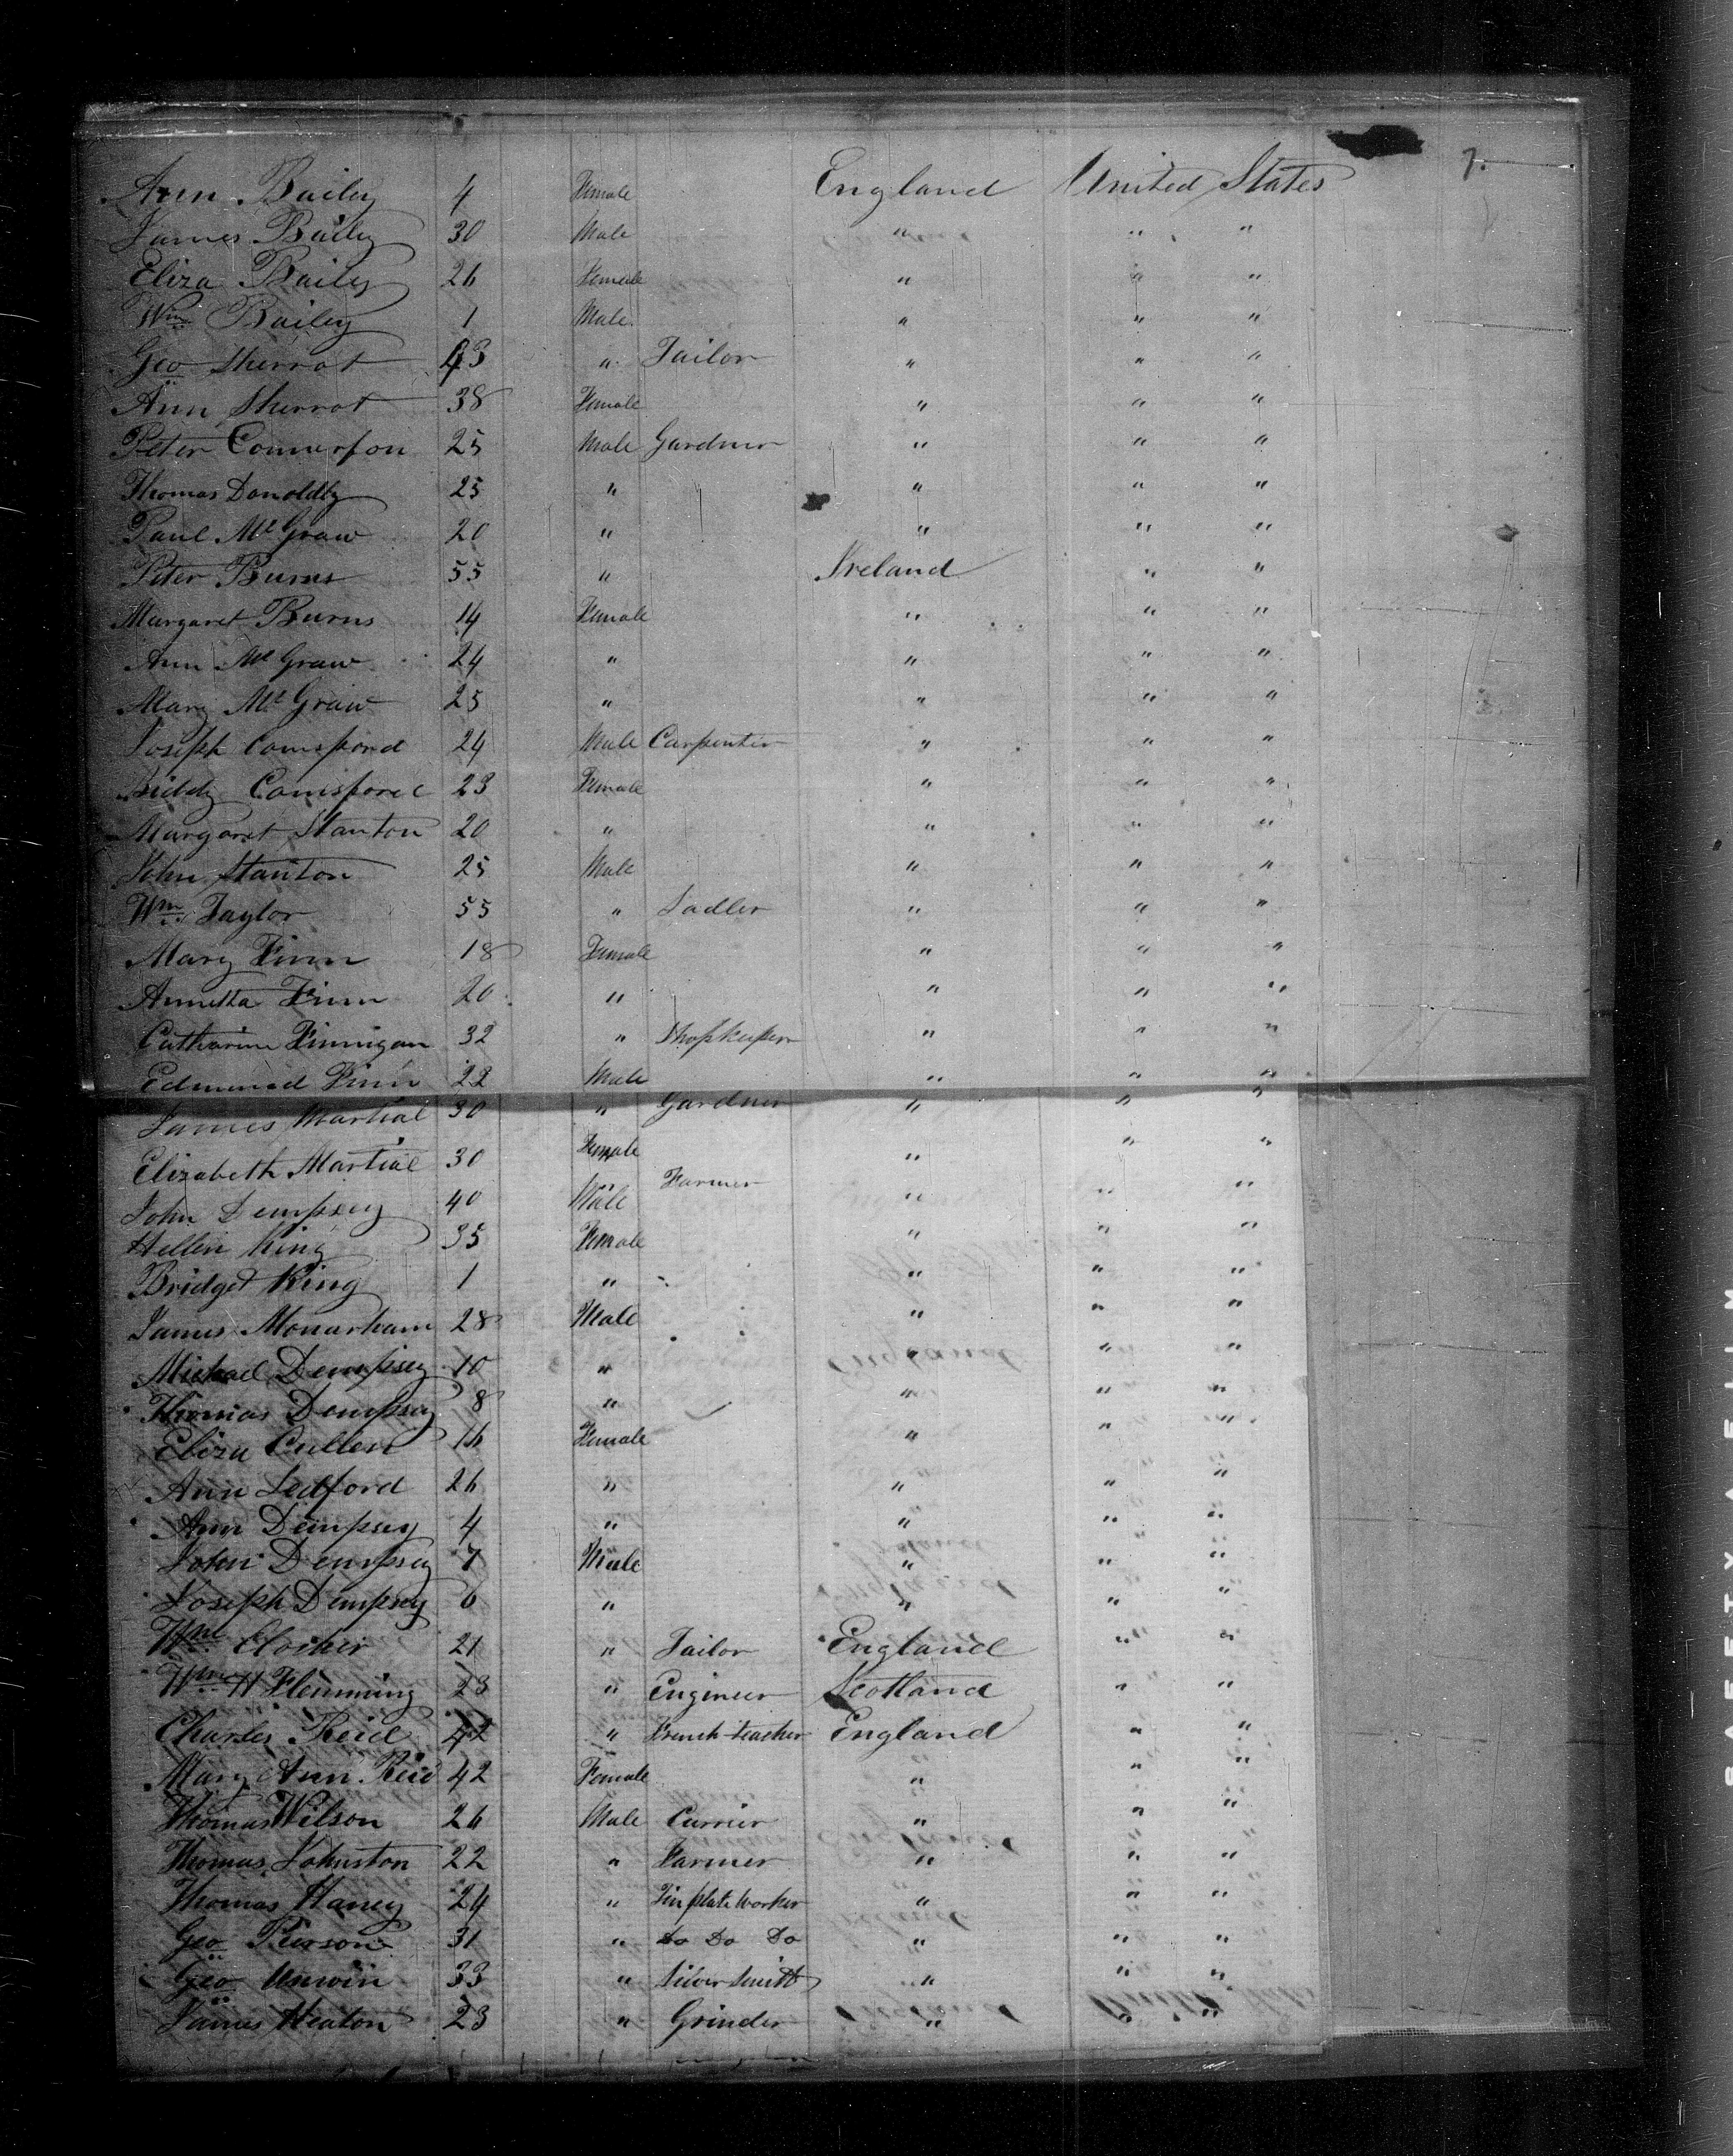 7.
Ann Bailey 4 Female England United States
James Bailey 30 Male " " "
Eliza Bailey 26 Female " " "
Wm Bailey 1 Male " " "
Geo Sherrot 43 " Tailor " " "
Ann Sherrot 38 Female " " "
Peter Comerfon 25 Male Gardner " " "
Thomas Donoldly 25 " " " "
Paul McGraw 20 " " " "
Peter Burns 55 " Ireland " "
Margaret Burns 14 Female " " "
Ann McGraw 24 " " " "
Mary McGraw 25 " " " "
Joseph Comsford 24 Male Carpenter " " "
Biddy 23 Female " " "
Margaret Stanton 20 " " " "
John Stanton 25 Male " " "
Wm Taylor 55 " Sadler " " "
Mary Finn 18 Female " " "
Annetta Finn 20 " " " "
Catharine Finnigan 32 " Shopkeeper " " "
Edmund Finn 22 Male " " "
James Martial 30 " Gardner " " "
Elizabeth Martial 30 Female " " "
John Dempsey 40 Male Farmer " " "
Hellen King 35 Female " " "
Bridget King 1 " " " "
James Monarham 28 Male " " "
Michael Dempsey 10 " " " "
Thomas Dempsey 8 " " " "
Eliza Cullen 16 Female " " "
Ann Ledford 26 " " " "
Ann Dempsey 4 " " " "
John Dempsey 7 Male " " "
Joseph Dempsey 6 " " " "
Wm 21 " Tailor England " "
Wm H Flemming 23 " Engineer Scotland " "
Charles Reid 42 " French teacher England " "
Mary Ann Reid 42 Female " " "
Thomas Wilson 26 Male Currier " " "
Thomas Johnston 22 " Farmer " " "
Thomas Haney 24 " Tin plate worker " " "
Geo Pierson 31 " Do Do Do " " "
Geo Unwin 33 " Silver Smith " " "
James Heaton 23 " Grinder " " "
SAFETY